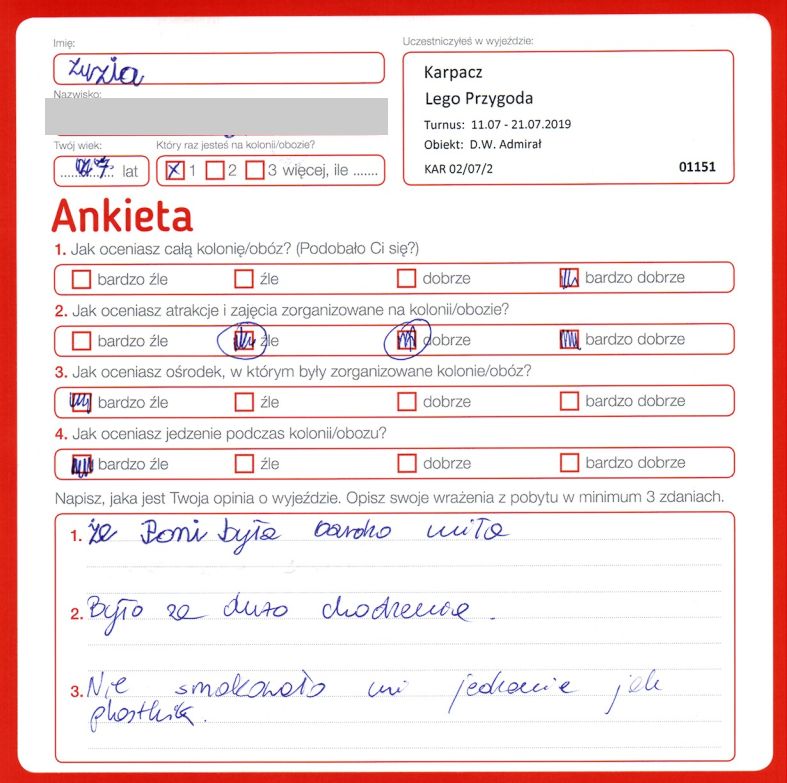 Imię:
Uczestniczyłeś w wyjeździe:
Zuzia
Karpacz
Lego Przygoda
Turnus: 11.07 - 21.07.2019
Obiekt: D.W. Admirał
KAR 02/07/2 01151
Nazwisko:
Twój wiek: Który raz jesteś na kolonii/obozie?
7 lat 1 2 3 więcej, ile .......
Ankieta
1. Jak oceniasz całą kolonię/obóz? (Podobało Ci się?)
bardzo źle źle dobrze bardzo dobrze
2. Jak oceniasz atrakcje i zajęcia zorganizowane na kolonii/obozie?
bardzo źle źle dobrze bardzo dobrze
3. Jak oceniasz ośrodek, w którym były zorganizowane kolonie/obóz?
bardzo źle źle dobrze bardzo dobrze
4. Jak oceniasz jedzenie podczas kolonii/obozu?
bardzo źle źle dobrze bardzo dobrze
Napisz, jaka jest Twoja opinia o wyjeździe. Opisz swoje wrażenia z pobytu w minimum 3 zdaniach.
1. że Pani była bardzo miła
2. Było za dużo chodzenia.
3. Nie smakowało mi jedzenie jak